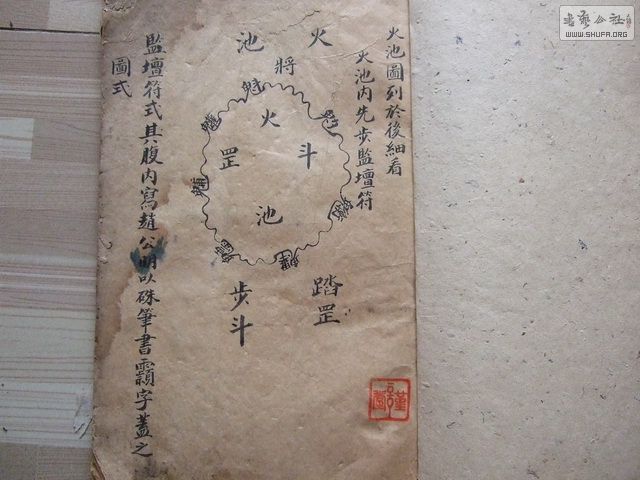 火池圖列於後細看
火池内先步監壇符
火將池
魁
火
斗
罡
池
踏罡
步斗
監壇符式其腹内寫趙公明以硃筆書字蓋之
圖式
书艺公社
WWW.SHUFA.ORG